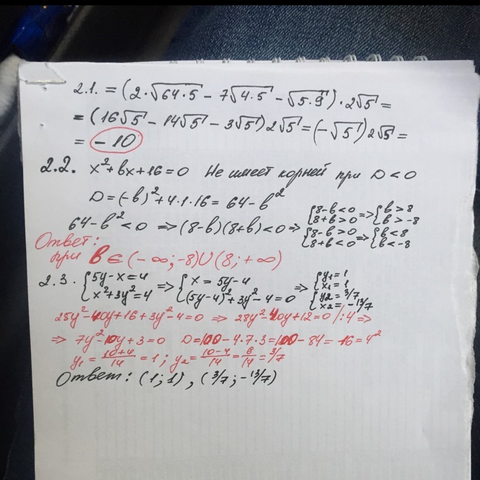 2.1. = (2·√64·5 - 7√4·5 - √5·9)·2√5 =
= (16√5 - 14√5 - 3√5)2√5 = (-√5)2√5 =
= -10
2.2. x²+bx+16=0 Не имеет корней при D<0
D=(-b)²+4·1·16=64-b²
64-b²<0 => (8-b)(8+b)<0 => {8-b<0 8+b>0 => {b>8 b>-8
{8-b>0 8+b<0 => {b<8 b<-8
Ответ:
при b∈(-∞;-8)∪(8;+∞)
2.3. {5y-x=4 x²+3y²=4 => {x=5y-4 (5y-4)²+3y²-4=0 => {y₁=1 x₁=1 {y₂=3/7 x₂=-13/7
25y²-40y+16+3y²-4=0 => 28y²-40y+12=0 /:4 =>
=> 7y²-10y+3=0 D=100-4·7·3=100-84=16=4²
y₁=10+4/14=1; y₂=10-4/14=6/14=3/7
Ответ: (1;1), (3/7;-13/7)